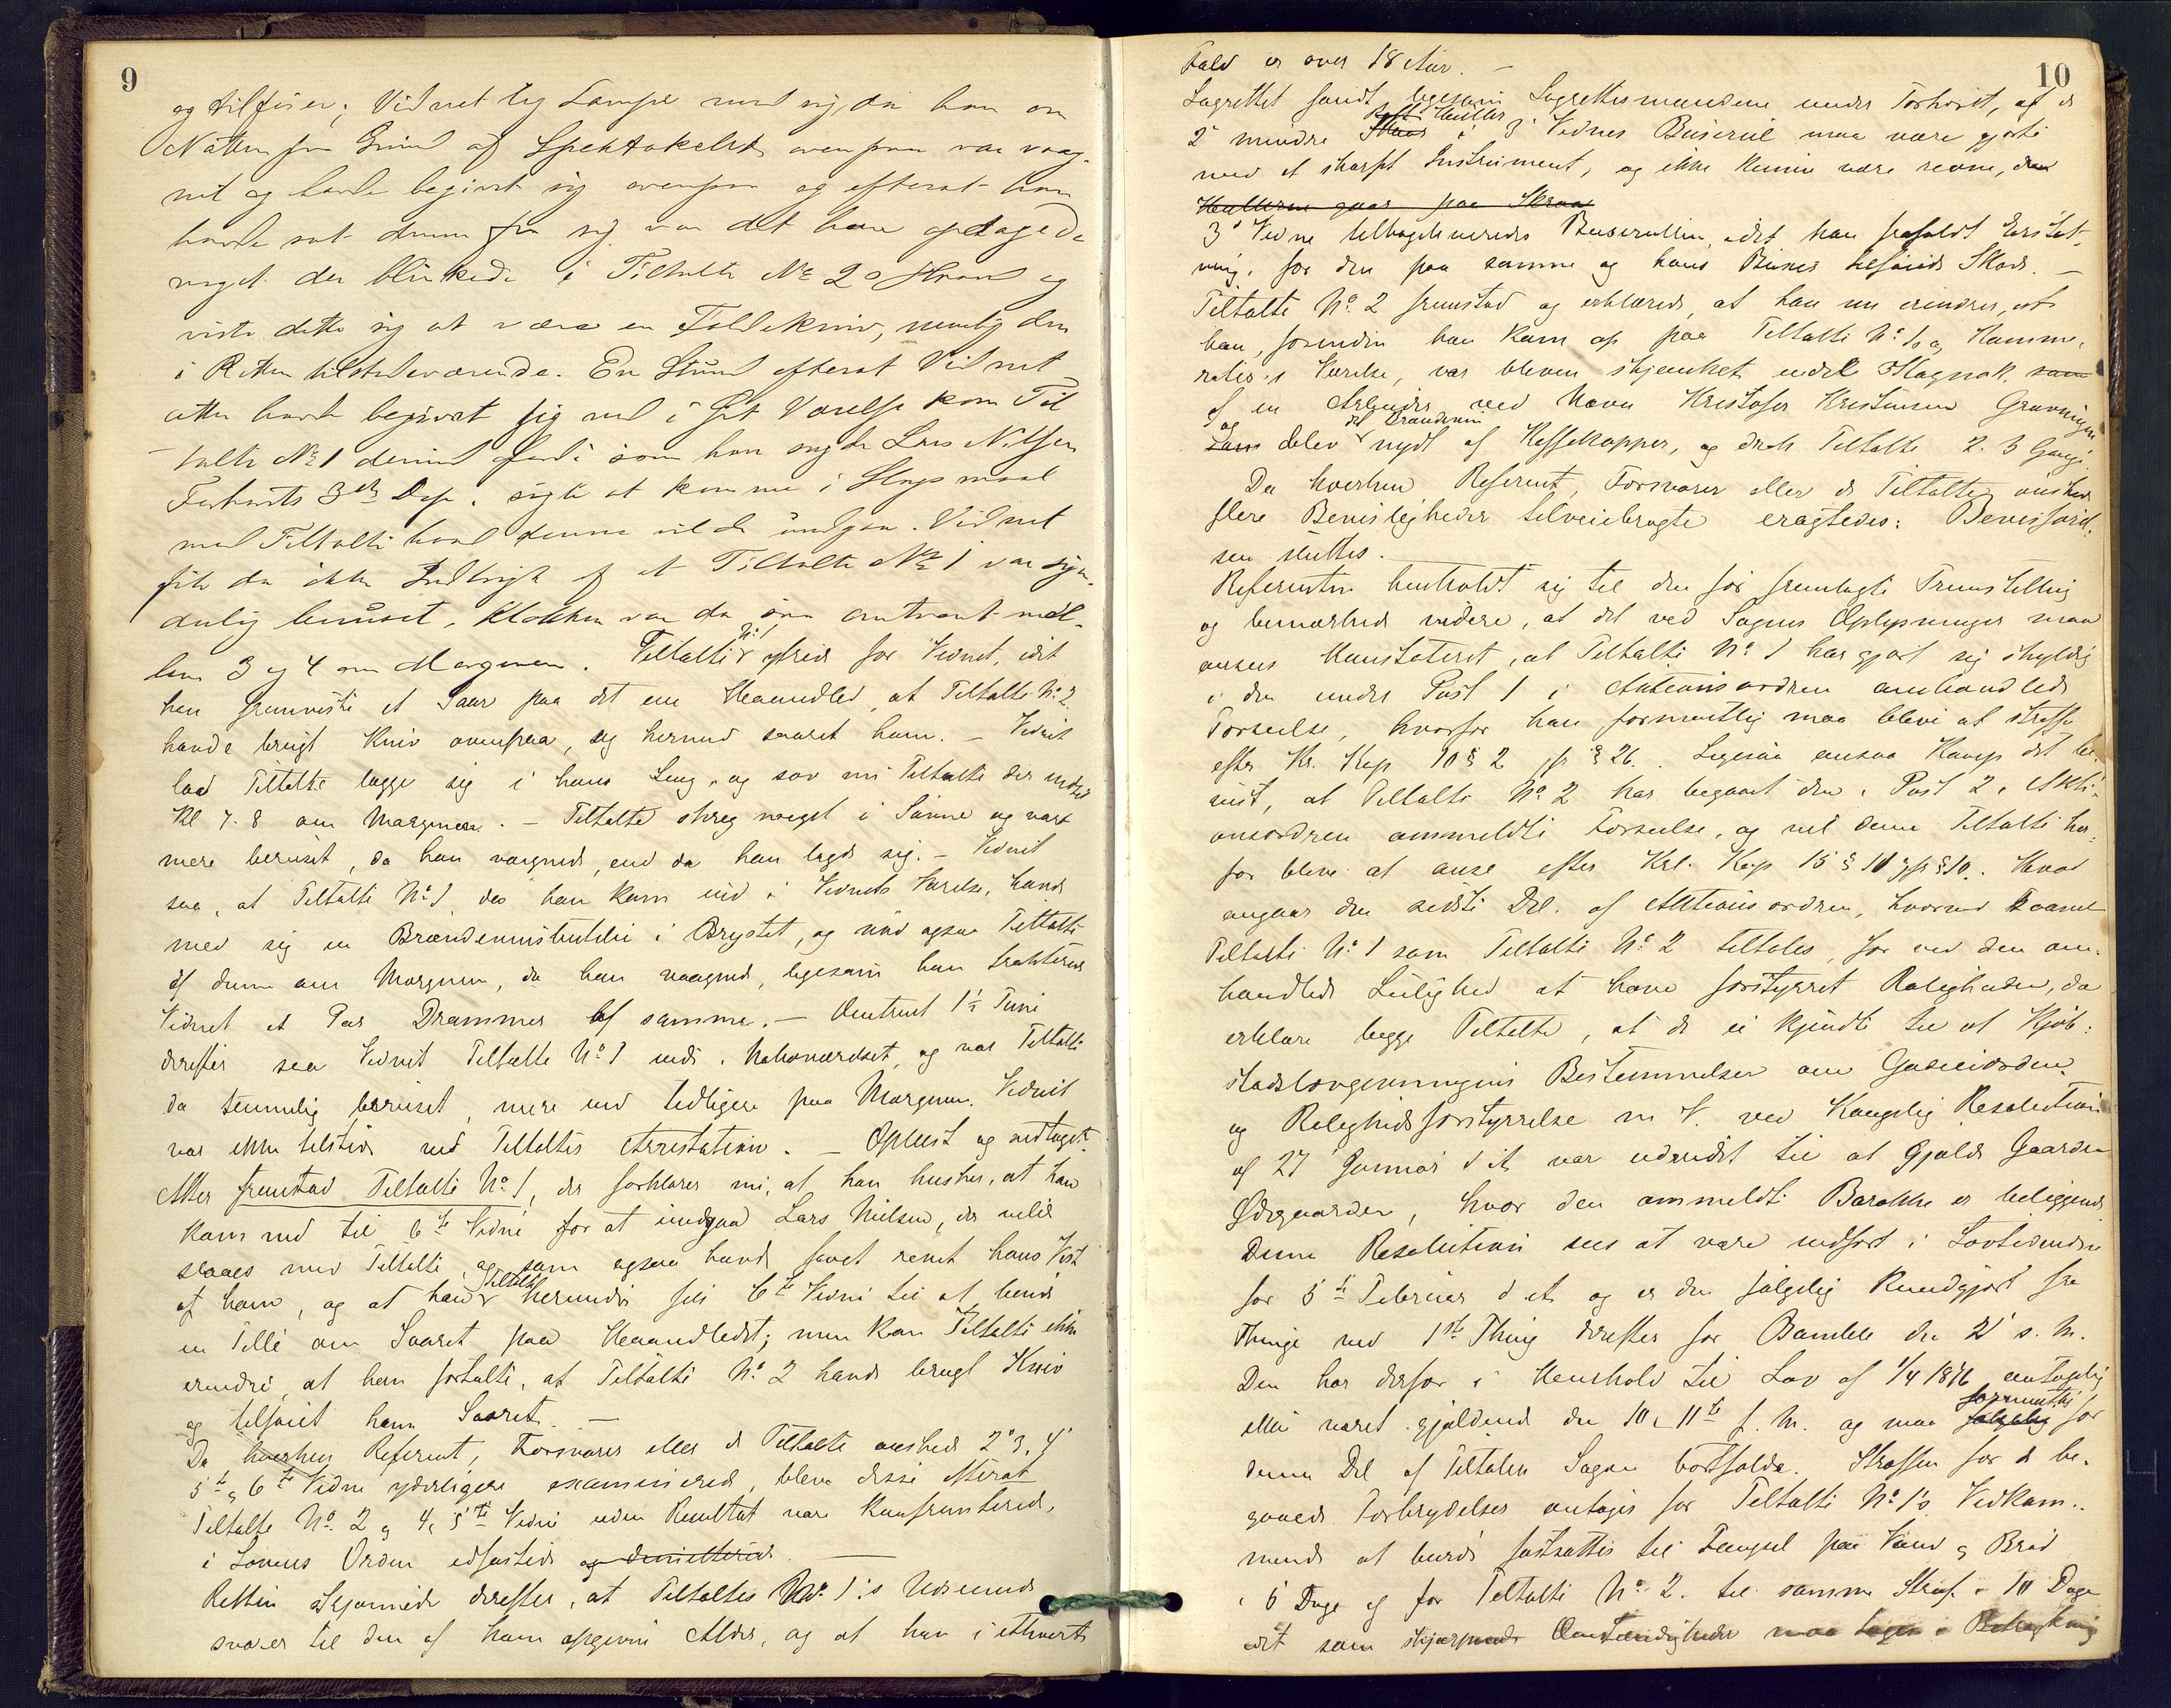 9
og tilføier; Vidnet tog Lampe med sig, da han om
Natten paa Grund af Spektakelet ovenpaa var vaag-
net og havde begivet sig ovenpaa og efterat han
havde sat denne fra sig var det han opdagede
noget der blinkede i Tiltalte No 2s Haand og
viste dette sig at være en Foldekniv, nemlig den
i Retten tilstedeværende. En Stund efterat Vidnet
atter havde begivet sig ned i sit Værelse kom Til
talte No 1 derind fordi som han sagde Lars Nilsen
Forhørets 3die Dep. søgte at komme i Slagsmaal
med Tiltalte hvad denne vilde undgaa. Vidnet
fik da ikke Indtryk af at Tiltalte No 1 var syn-
derlig beruset, Klokken var da saa omtrent mel-
lem 3 og 4 om Morgenen. Tiltalte No 1 ytrede for Vidnet, idet
han fremviste et Saar paa det ene Haandled, at Tiltalte No 2
havde brugt Kniv ovenpaa, og hermed saaret ham. – Vidnet
lod Tiltalte lægge sig i hans Seng, og sov nu Tiltalte der indtil
Kl 7-8 om Morgenen. – Tiltalte skreg noget i Søvne og var
mere beruset, da han vaagnede, end da han lagde sig. – Vidnet
saa, at Tiltalte No 1, da han kom ind i Vidnets Værelse, havde
med sig en Brændevinsbutelie i Brystet, og nød ogsaa Tiltalte
af denne om Morgenen, da han vaagnede, ligesom han trakterede
Vidnet et Par Drammer af samme. – Omtrent 1½ Time
derefter saa Vidnet Tiltalte No 1 inde i Naboværelset, og var Tiltalte
da temmelig beruset, mere end tidligere paa Morgenen. Vidnet
var ikke tilstede ved Tiltaltes Arrestation. – Oplæst og vedtaget.
Atter fremstod Tiltalte No 1, der forklarer nu, at han husker, at han
kom ned til 6te Vidne for at undgaa Lars Nilsen, der vilde
slaaes med Tiltalte, og som ogsaa havde faaet revet hans Vest
af ham, og at han Tiltalte hernede hos 6te Vidne til at binde
en Fille om Saaret paa Haandledet; men kan Tiltalte ikke
erindre, at han fortalte, at Tiltalte No 2 havde brugt Kniv
og tilføiet ham Saaret. –
Da hverken Referent, Forsvarer eller de Tiltalte ønskede 2', 3', 4'
5te og 6te Vidne yderligere examinerede, bleve disse efterat
Tiltalte No 2 og 4, 5te Vidne uden Resultat vare konfronterede,
i Lovens Orden edfæstede og demitterede. –
Retten skjønnede derefter, at Tiltaltes No 1's Udseende
svarer til den af ham opgivne Alder, og at han i ethvert
10
Fald er over 18 Aar. –
Lagrettet fandt, ligesom Lagrettesmændene under Forhøret, at de
2 mindre Skaar Huller i 3' Vidnes Buserul maa være gjorte
med et skarpt Instrument, og ikke kunne være revne, da
Hullerne gaar paa Skraa
3' Vidne tilbageleveredes Buserullen, idet han frafaldt Erstat-
ning, for den paa samme og hans Buxer tilføiede Skade. –
Tiltalte No 2 fremstod og erklærede, at han nu erindrer, at
han, førend han kom op paa Tiltalte No 1 og Kamme-
raters Værelse, var bleven skjænket endel Kognak, som
af en Arbeider ved Navn Kristofer Kristensen Gravningen
og blev det Brændevin nydt af Kaffekopper, og drak Tiltalte 2-3 Gange.
Da hverken Referent, Forsvarer eller de Tiltalte ønskede
flere Bevisligheder tilveiebragte eragtedes: Bevisførel-
sen sluttes.
Referenten henholdt sig til den før fremlagte Fremstilling
og bemærkede videre, at det ved Sagens Oplysninger maa
ansees konstateret, at Tiltalte No 1 har gjort sig skyldig
i den under Post 1 i Aktionsordren omhandlede
Forseelse, hvorfor han formentlig maa blive at straffe
efter Kr. Kap 10 § 2 jfr § 26. Ligesaa ansaa Ham det be-
vist, at Tiltalte No 2 har begaaet den i Post 2 i Akti-
onsordren ommeldte Forseelse, og vil denne Tiltalte her-
for blive at anse efter Krl. Kap 15 § 11 jfr § 10. Hvad
angaar den sidste Del af Aktionsordren, hvorved saavel
Tiltalte No 1 som Tiltalte No 2 tiltales, for ved den om-
handlede Leilighed at have forstyrret Roligheden, da
erklærer begge Tiltalte, at de ei kjendte til at Kjøb-
stadslovgivningens Bestemmelser om Gadeuorden
og Rolighedsforstyrrelse m V. ved Kongelig Resolution
af 27 Januar d A. var udvidet til at gjælde Gaarden
Ødegaarden, hvor den ommeldte Barakke er beliggende
Denne Resolution sees at være indført i Lovtidenden
for 5te Februar d A og er den følgelig kundgjort fra
Thinge ved 1ste Thing derefter for Bamble den 21 s. M.
Den har derfor i Henhold til Lov af 1/4 1876 antagelig
ikke været gjældende den 10, 11te f. M. og maa følgelig formentlig for
denne Del af Tiltalen Sagen bortfalde. Straffen for de be-
gaaede Forbrydelser antoges for Tiltalte No 1's Vedkom-
mende at burde fastsættes til Fængsel paa Vand og Brød
i 6 Dage og for Tiltalte No 2 til samme Straf i 10 Dage
idet som skjærpende Omstændigheder maa tages i Betragtning